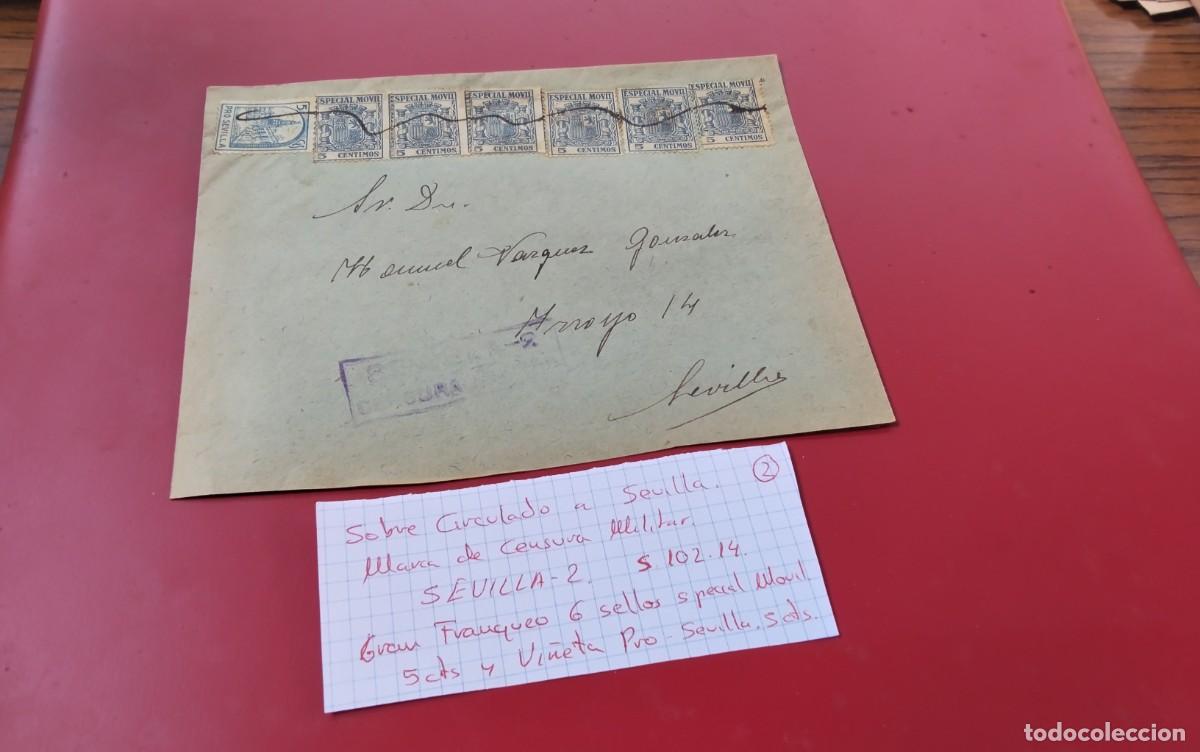 PRO SEVILLA 5
ESPECIAL MOVIL ESPECIAL MOVIL ESPECIAL MOVIL ESPECIAL MOVIL ESPECIAL MOVIL ESPECIAL MOVIL
5 CENTIMOS 5 CENTIMOS 5 CENTIMOS 5 CENTIMOS 5 CENTIMOS 5 CENTIMOS
Sr. Dn.
Manuel Vazquez Gonzalez
Arroyo 14
Sevilla
2
Sobre Circulado a Sevilla.
Marca de Censura Militar.
SEVILLA-2. S 102.14.
Gran Franqueo 6 sellos special Movil
5 cts y Viñeta Pro-Sevilla. 5 cts.
todocoleccion